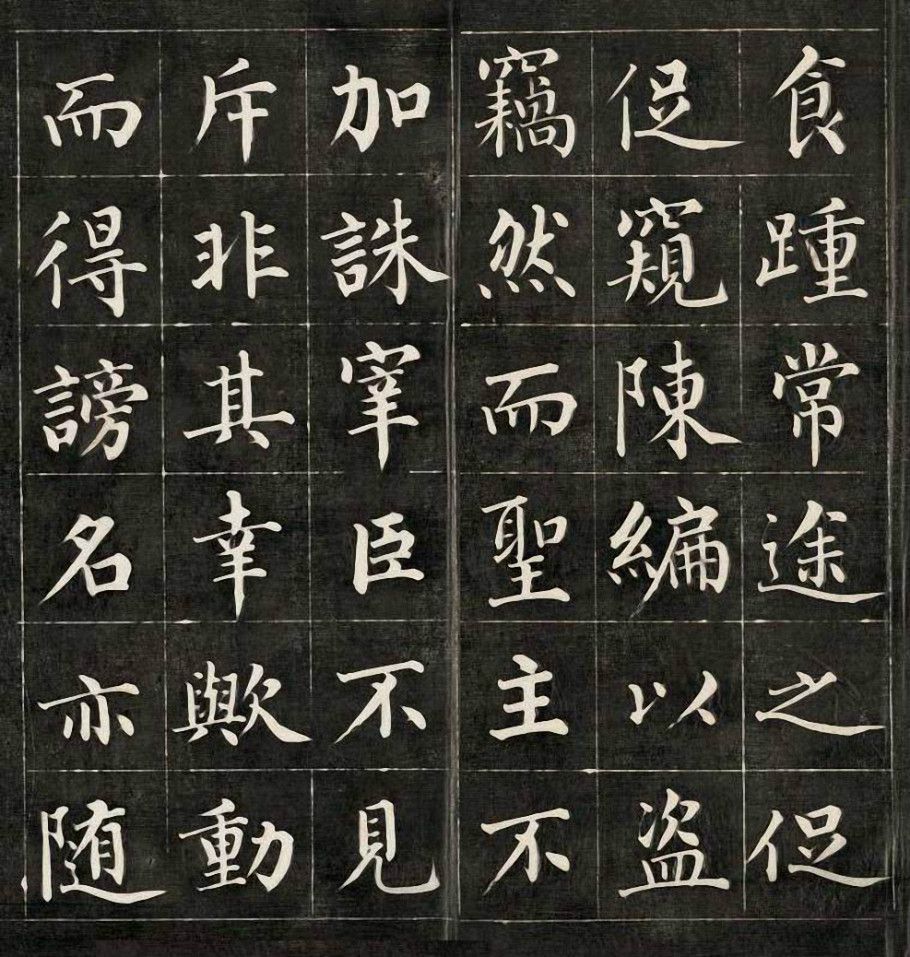 食踵常途之促
促窺陳編以盜
竊然而聖主不
加誅宰臣不見
斥非其幸歟動
而得謗名亦随